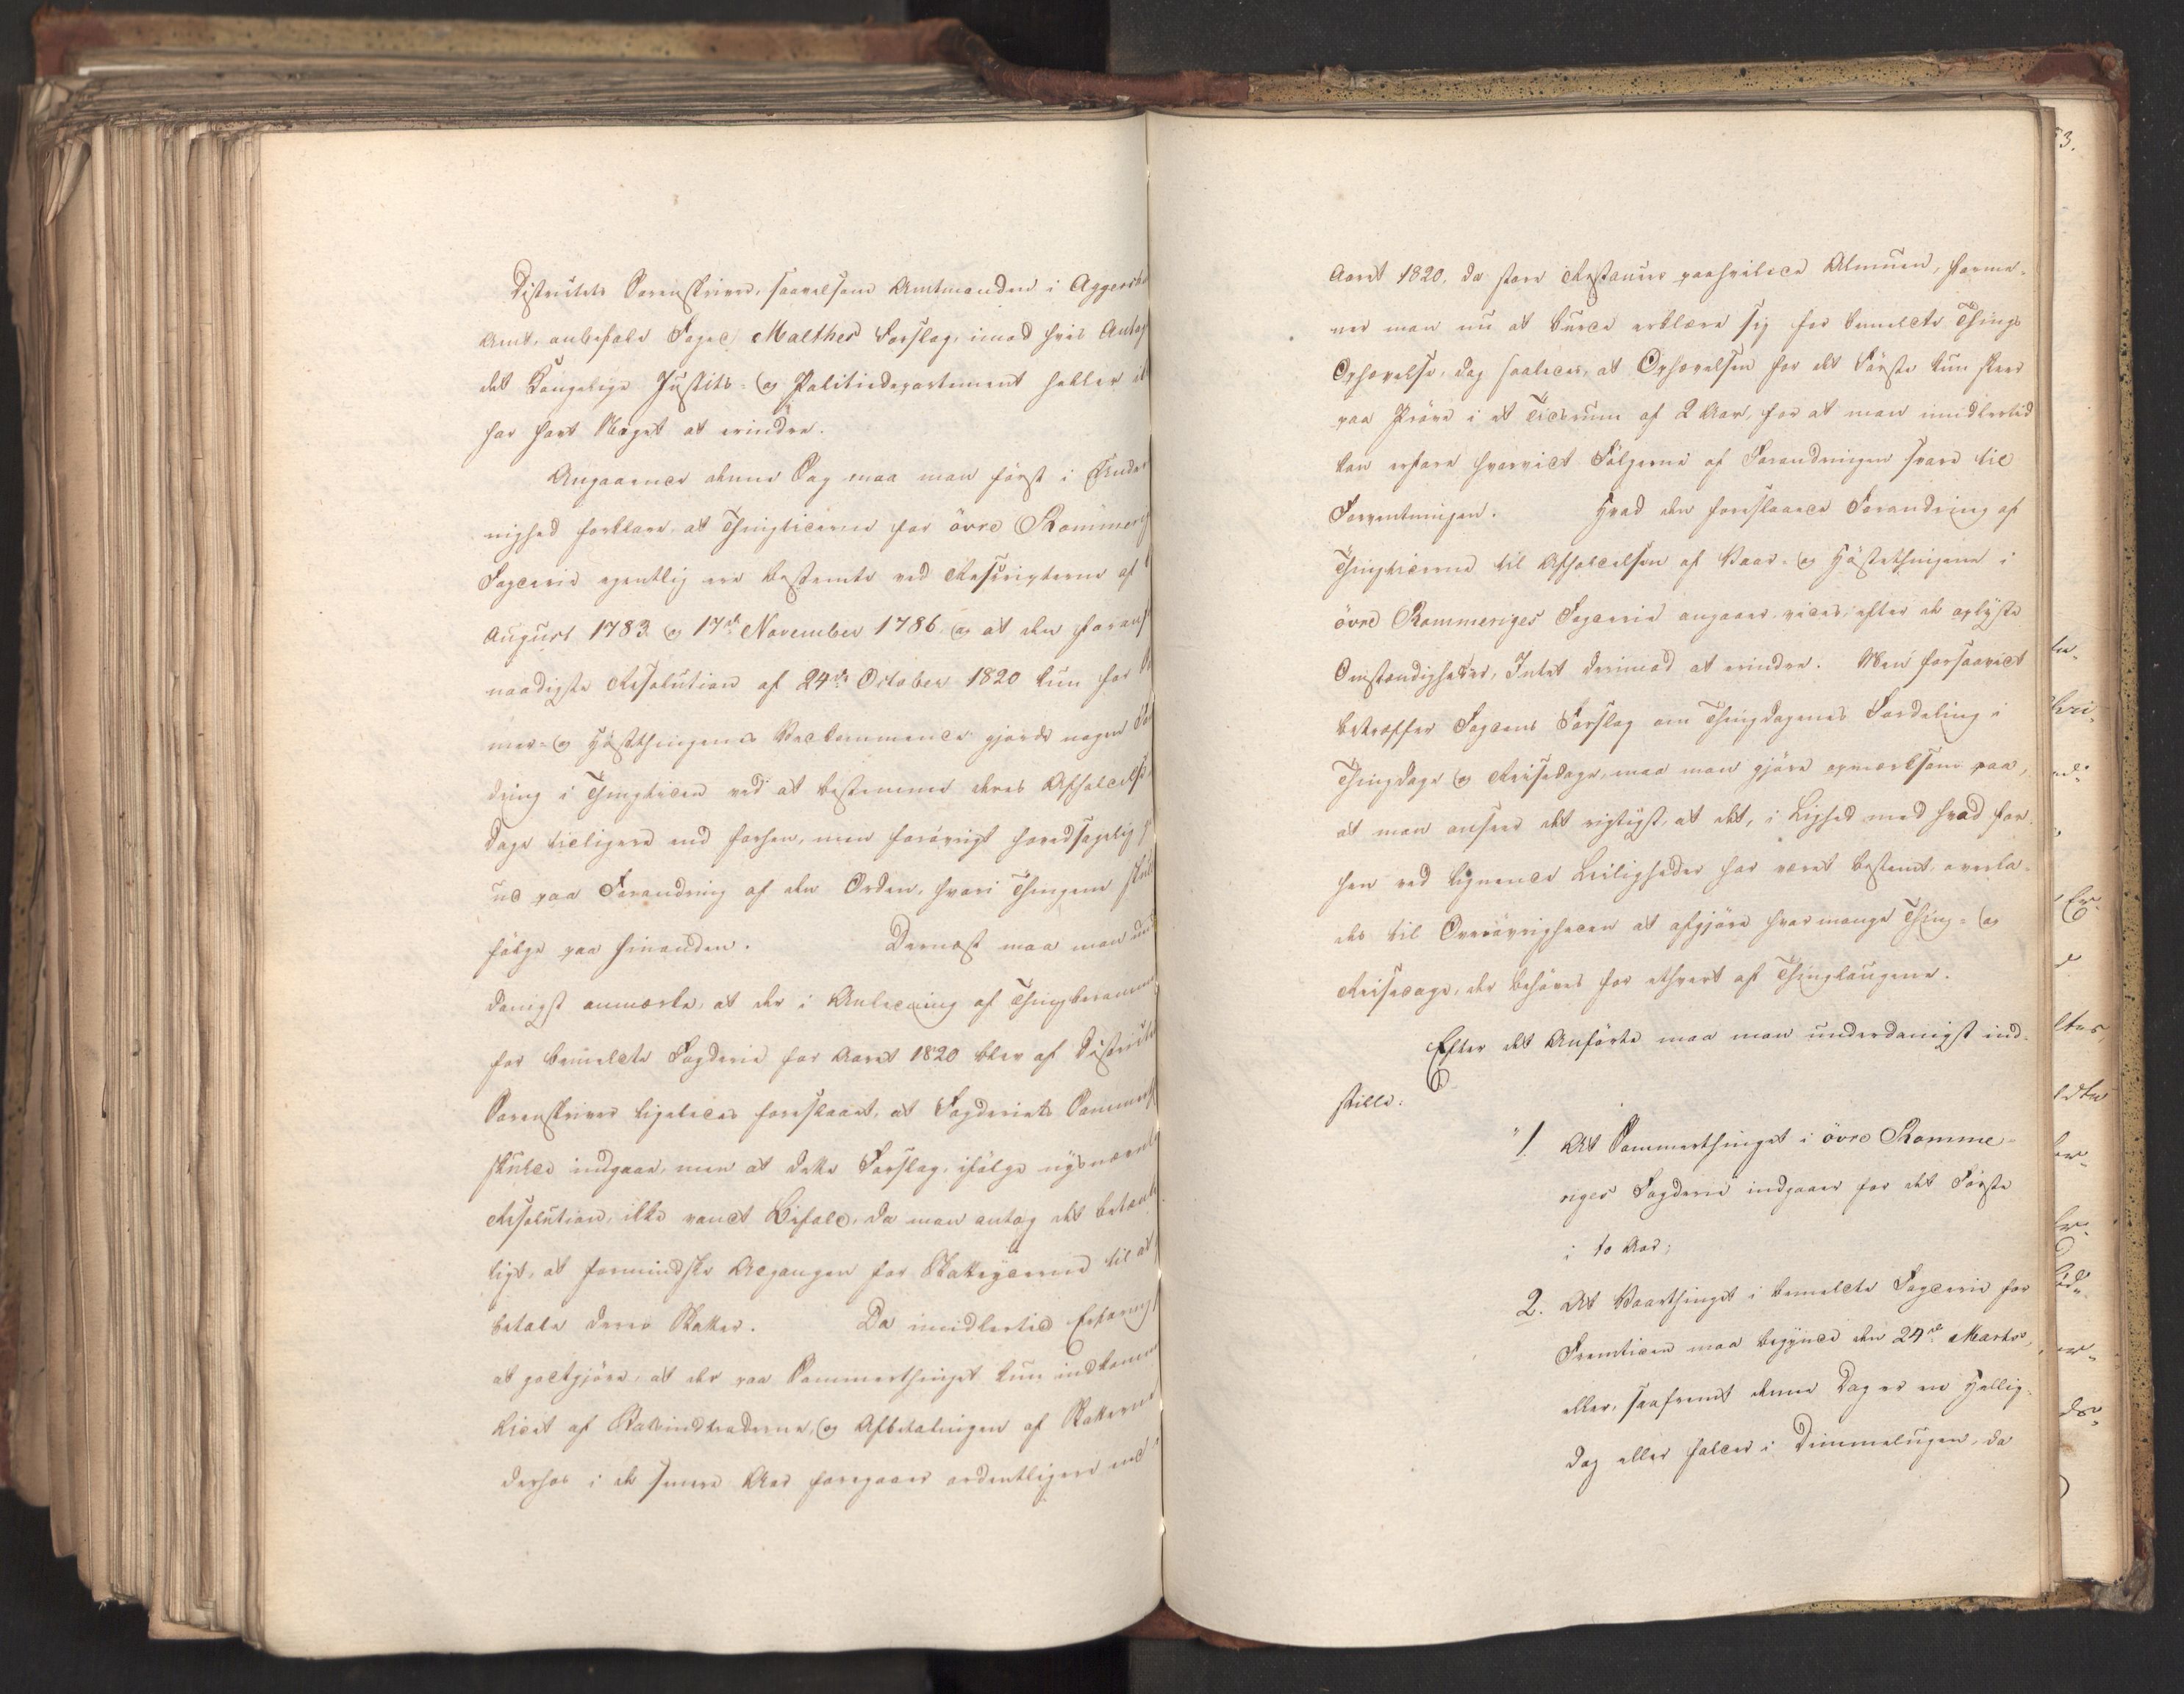 Districtets Sorenskriver, saavelsom Amtmanden i Aggersh
Amt, anbefale Foged Malthes Forslag, imod hvis Antag
det Kongelige Justits- og Politiedepartement heller ik
har havt Noget at erindre.
Angaaende denne Sag maa man först i Under
nighed forklare, at Thingtiderne for övre Rommerig
Fogderie egentlig ere bestemte ved Rescripterne af
August 1783 og 17de November 1786, og at den
naadigste Resolution af 24de October 1820 kun for
mer- og Höstthingenes Vedkommende gjorde nogen
dring i Thingtiden ved at bestemme deres Afholdelse
Dage tidligere end forhen, men forövrigt hovedsagelig
ud paa Forandring af den Orden, hvori Thingene skul
fölge paa hinanden. Dernæst maa man un
danigst anmærke, at der i Anledning af Thingberamme
for bemeldte Fogderie for Aaret 1820 blev af District
Sorenskriver ligeledes foreslaaet, at Fogderiets Sommerth
skulde indgaae, men at dette Forslag, ifölge nysnævnte
Resolution, ikke vandt Bifald, da man antog det betænk
ligt, at formindske Adgangen for Skatteyderne til at
betale deres Skatter. Da imidlertid Erfaring
at godtgjöre, at der paa Sommerthinget kun indkomme
Lidet af Skatteindtraderne, og Afbetalingen af Skatterne
derhos i de senere Aar foregaaer ordentligere end i
Aaret 1820, da store Restancer paahvilede Almuen, forme-
ner man nu at burde erklære sig for bemeldte Things
Ophævelse, dog saaledes, at Ophævelsen for det Förste kun skeer
paa Pröve i et Tidsrum af 2 Aar, for at man imidlertid
kan erfare hvorvidt Fölgerne af Forandringen svare til
Forventningen. Hvad den foreslaaede Forandring af
Thingtiderne til Afholdelsen af Vaar- og Höstethingene i
övre Rommeriges Fogderie angaaer, vides, efter de oplyste
Omstændigheder, Intet derimod at erindre. Men forsaavidt
betræffer Fogdens Forslag om Thingdagenes Fordeling i
Thingdage og Reisedage, maa man gjöre opmærksom paa,
at man anseer det rigtigst, at det, i Lighed med hvad for-
hen ved lignende Leiligheder har været bestemt, overla-
des til Overövrigheden at afgjöre hvormange Thing- og
Reisedage, der behöves for ethvert af Thinglaugene.
Efter det Anförte maa man underdanigst ind-
stille:
"1. At Sommerthinget i övre Romme-
riges Fogderie indgaaer for det Förste
i to Aar;
2. At Vaarthinget i bemeldte Fogderie for
Fremtiden maa begynde den 24de Marts,
eller, saafremt denne Dag er en Hellig-
dag eller falder i Dimmelugen, da